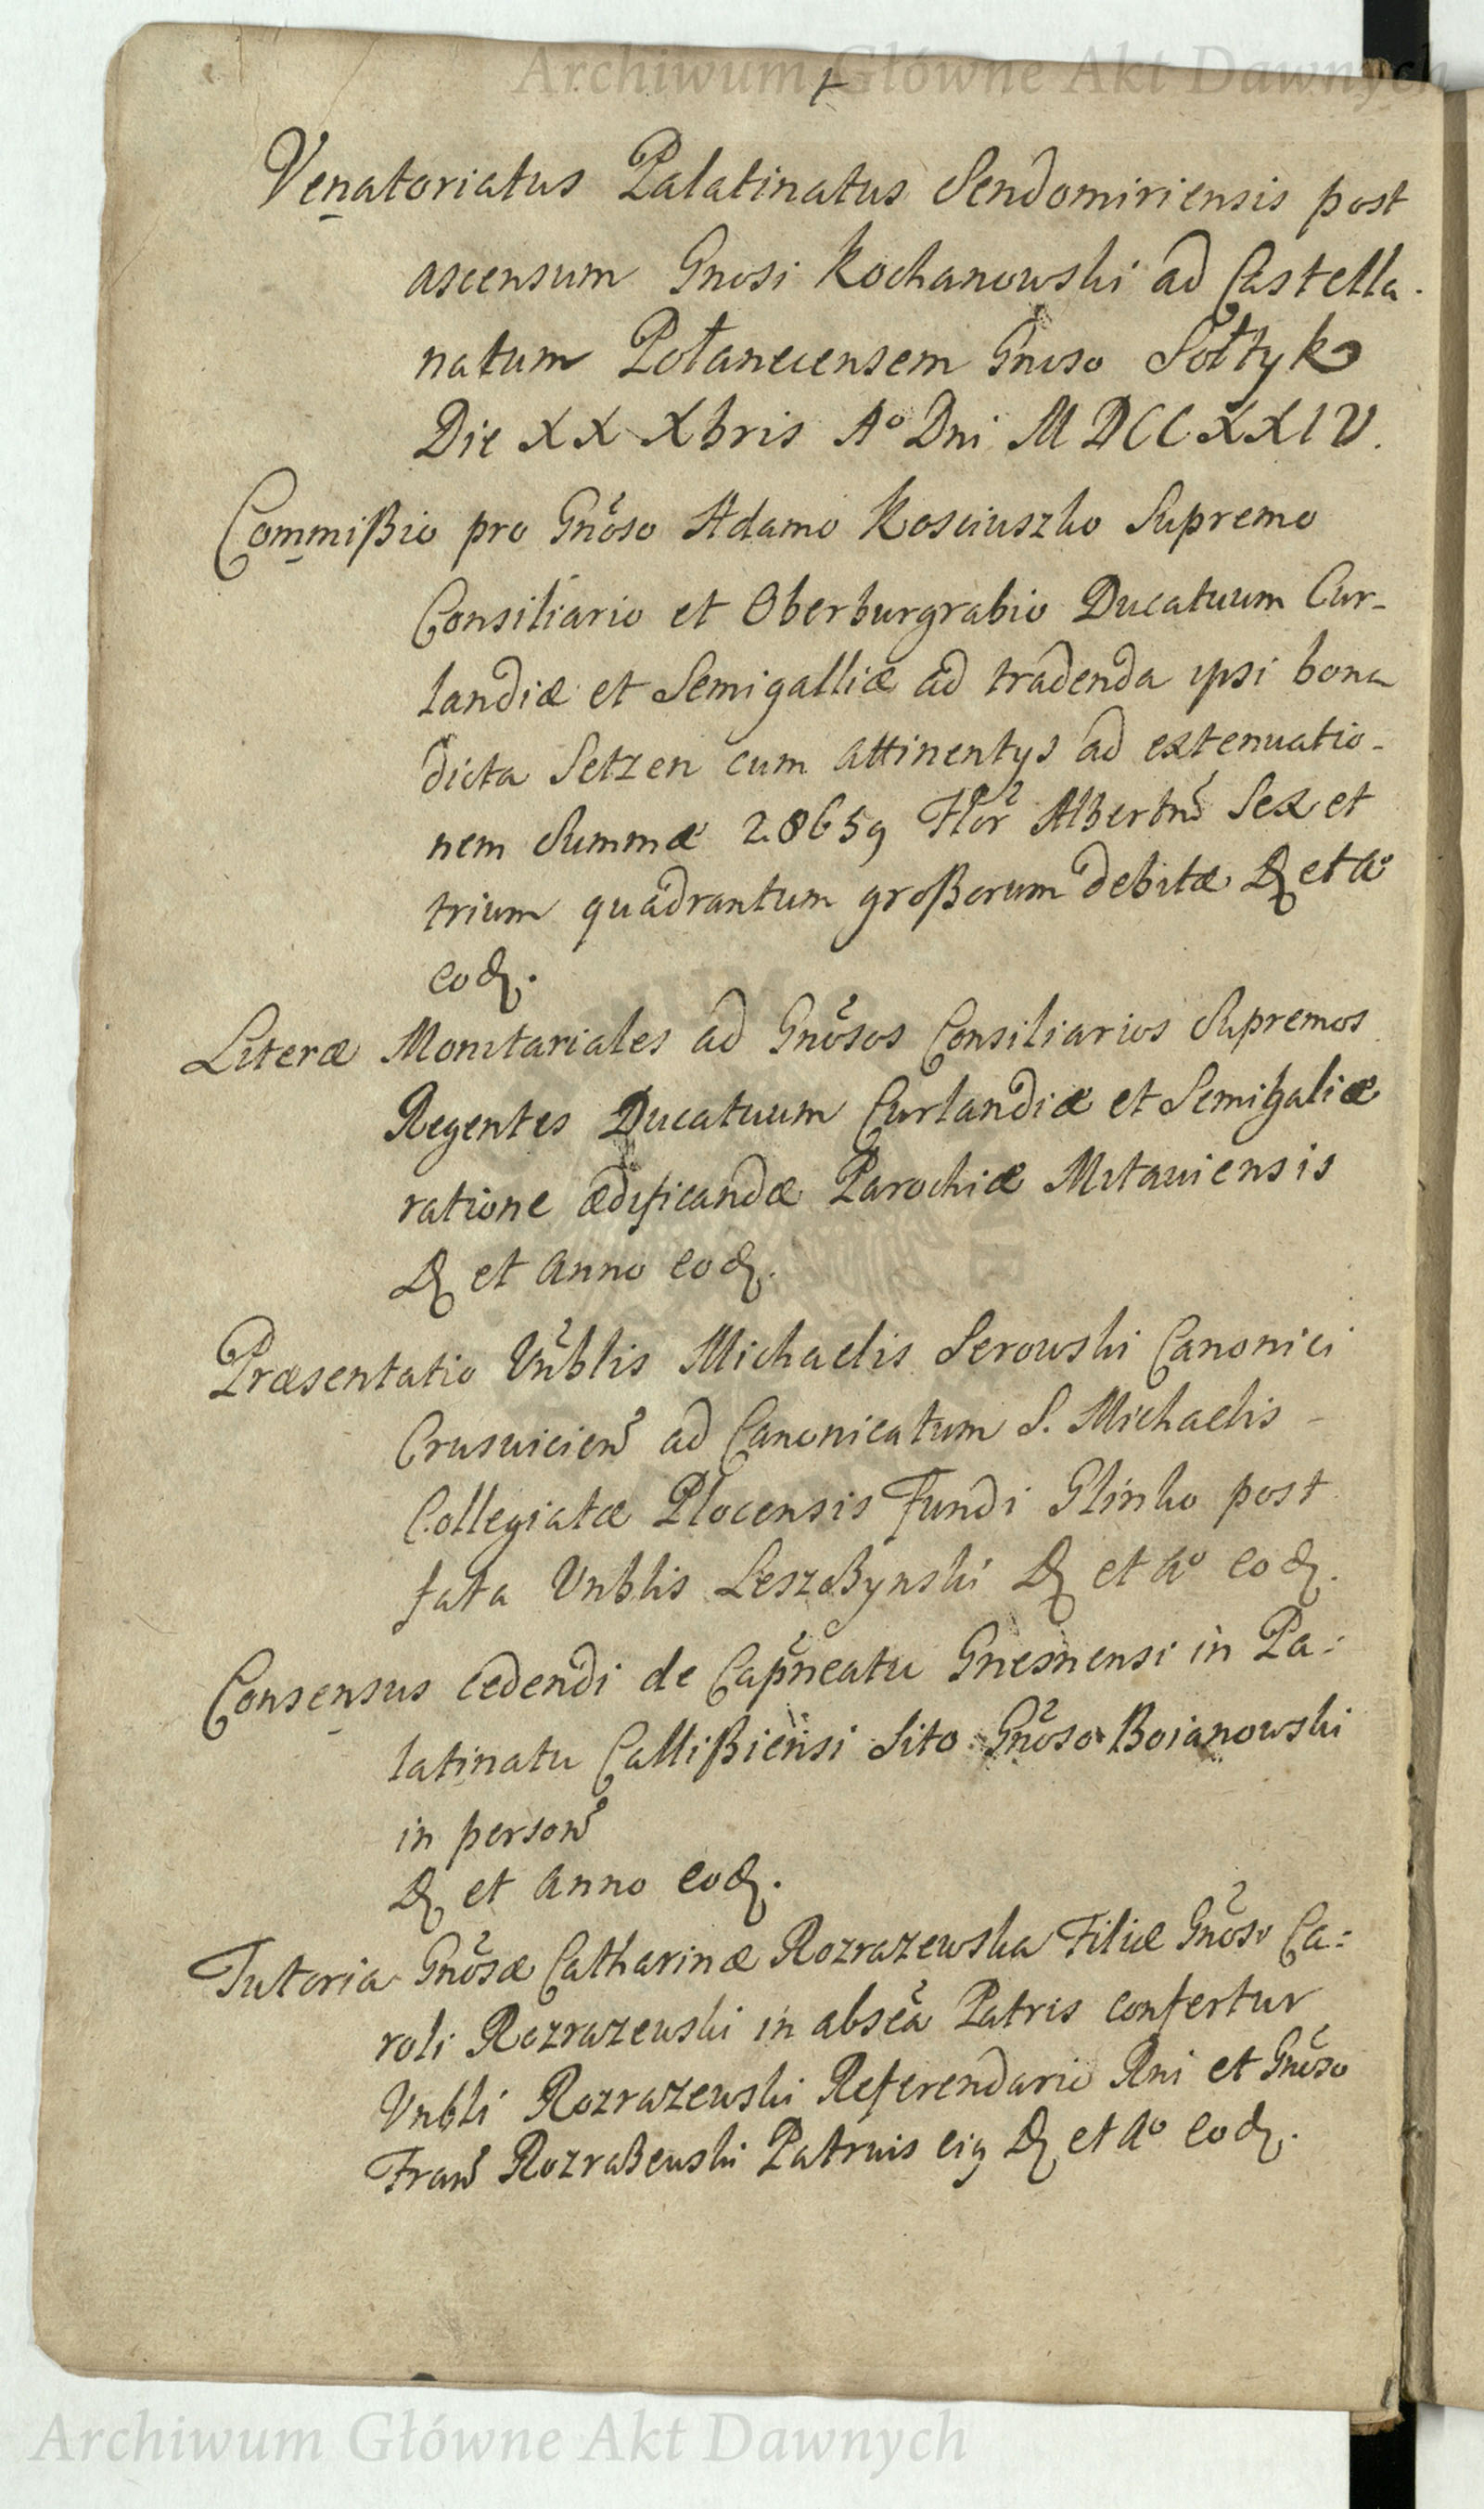 Archiwum Główne Akt Dawnych
Venatoriatus Palatinatus Sendomiriensis post
ascensum Gnosi Kochanowski ad Castella-
natum Połanecensem Gnoso Sołtyk
Die XX Xbris Aº Dni MDCCXXIV.
Commißio pro Gnoso Adamo Kosciuszko Supremo
Consiliario et Oberburgrabio Ducatuum Cur-
landiæ et Semigalliæ ad tradenda ipsi bona
dicta Setzen cum attinentys ad extenuatio-
nem Summæ 28659 Flor Albertns Sex et
trium quadrantum großorum debitæ D et Aº
eod.
Literæ Monitariales ad Gnosos Consiliarios Supremos
Regentes Ducatuum Curlandiæ et Semigaliæ
ratione ædificandæ Parochiæ Mitaviensis
D et Anno eod.
Præsentatio Vnblis Michaelis Serowski Canonici
Crusvicien ad Canonicatum S. Michaelis
Collegiatæ Plocensis Fundi Glinko post
fata Vnblis Leszczynski D et Aº eod.
Consensus cedendi de Capneatu Gnesnensi in Pa:
latinatu Callißiensi sito Gnoso Boianowski
in person
D et Anno eod.
Tutoria Gnosæ Catharinæ Rozrazewska Filiæ Gnoso Ca:
roli Rozrazewski in absca Patris confertur
Vnbli Rozrazewski Referendario Rni et Gnoso
Fran Rozrazewski Patruis eig D et Aº eod.
Archiwum Główne Akt Dawnych